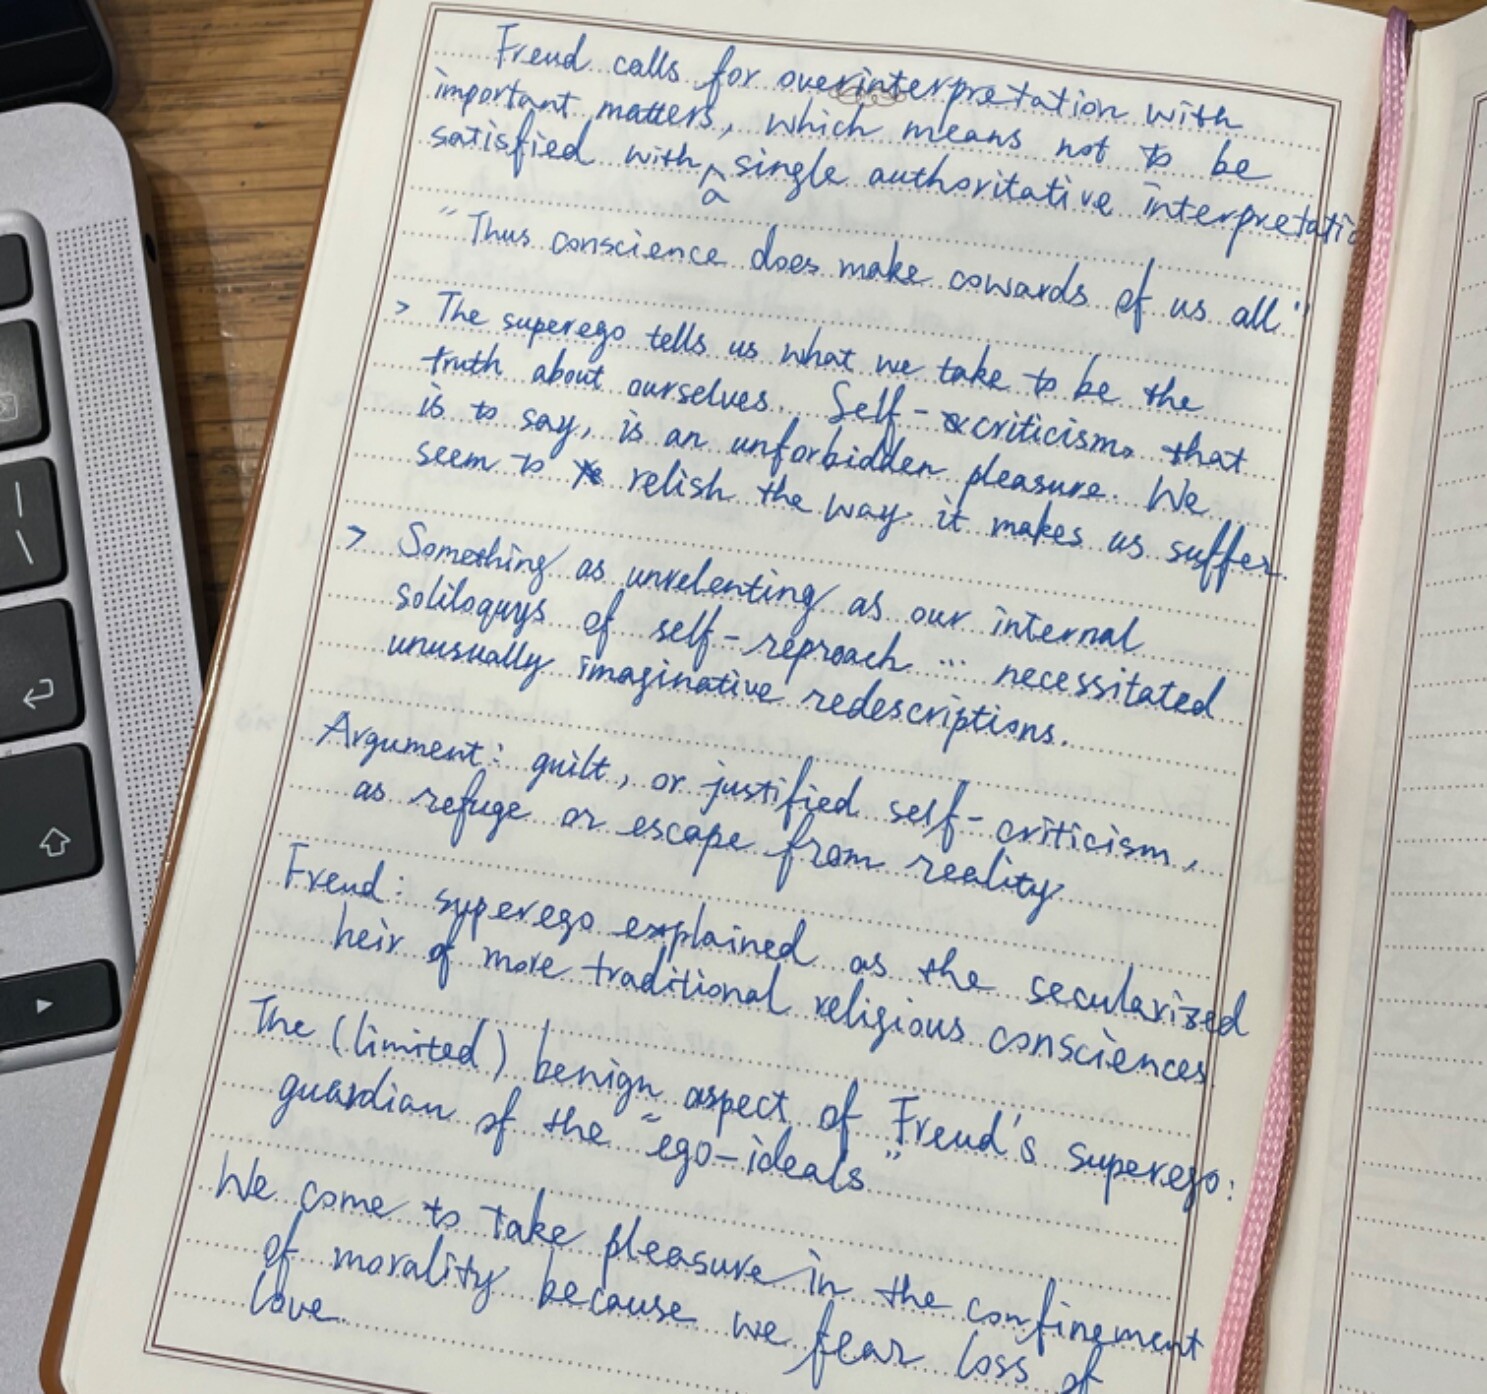 Freud calls for overinterpretation with
important matters, which means not to be
satisfied with a single authoritative interpretatio
"Thus conscience does make cowards of us all"
> The superego tells us what we take to be the
truth about ourselves. Self-criticism, that
is to say, is an unforbidden pleasure. We
seem to relish the way it makes us suffer.
> Something as unrelenting as our internal
soliloquys of self-reproach ... necessitated
unusually imaginative redescriptions.
Argument: guilt, or justified self-criticism,
as refuge or escape from reality
Freud: superego explained as the secularized
heir of more traditional religious consciences
The (limited) benign aspect of Freud's superego:
guardian of the "ego-ideals"
We come to take pleasure in the confinement
of morality because we fear loss of
love.